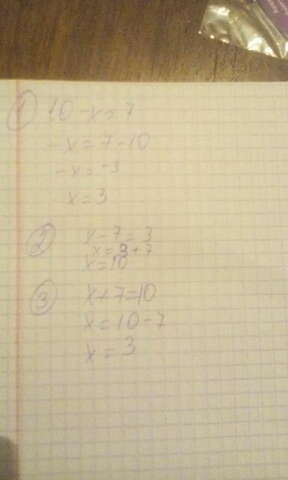 ① 10 - x = 7
- x = 7 - 10
- x = - 3
x = 3
② x - 7 = 3
x = 3 + 7
x = 10
③ x + 7 = 10
x = 10 - 7
x = 3